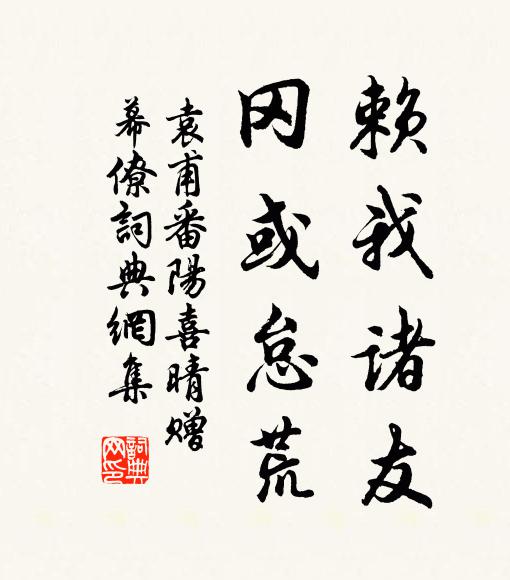 赖我诸友
罔或怠荒
袁甫番陽喜晴赠
幕僚詞典網集
詞典
网印